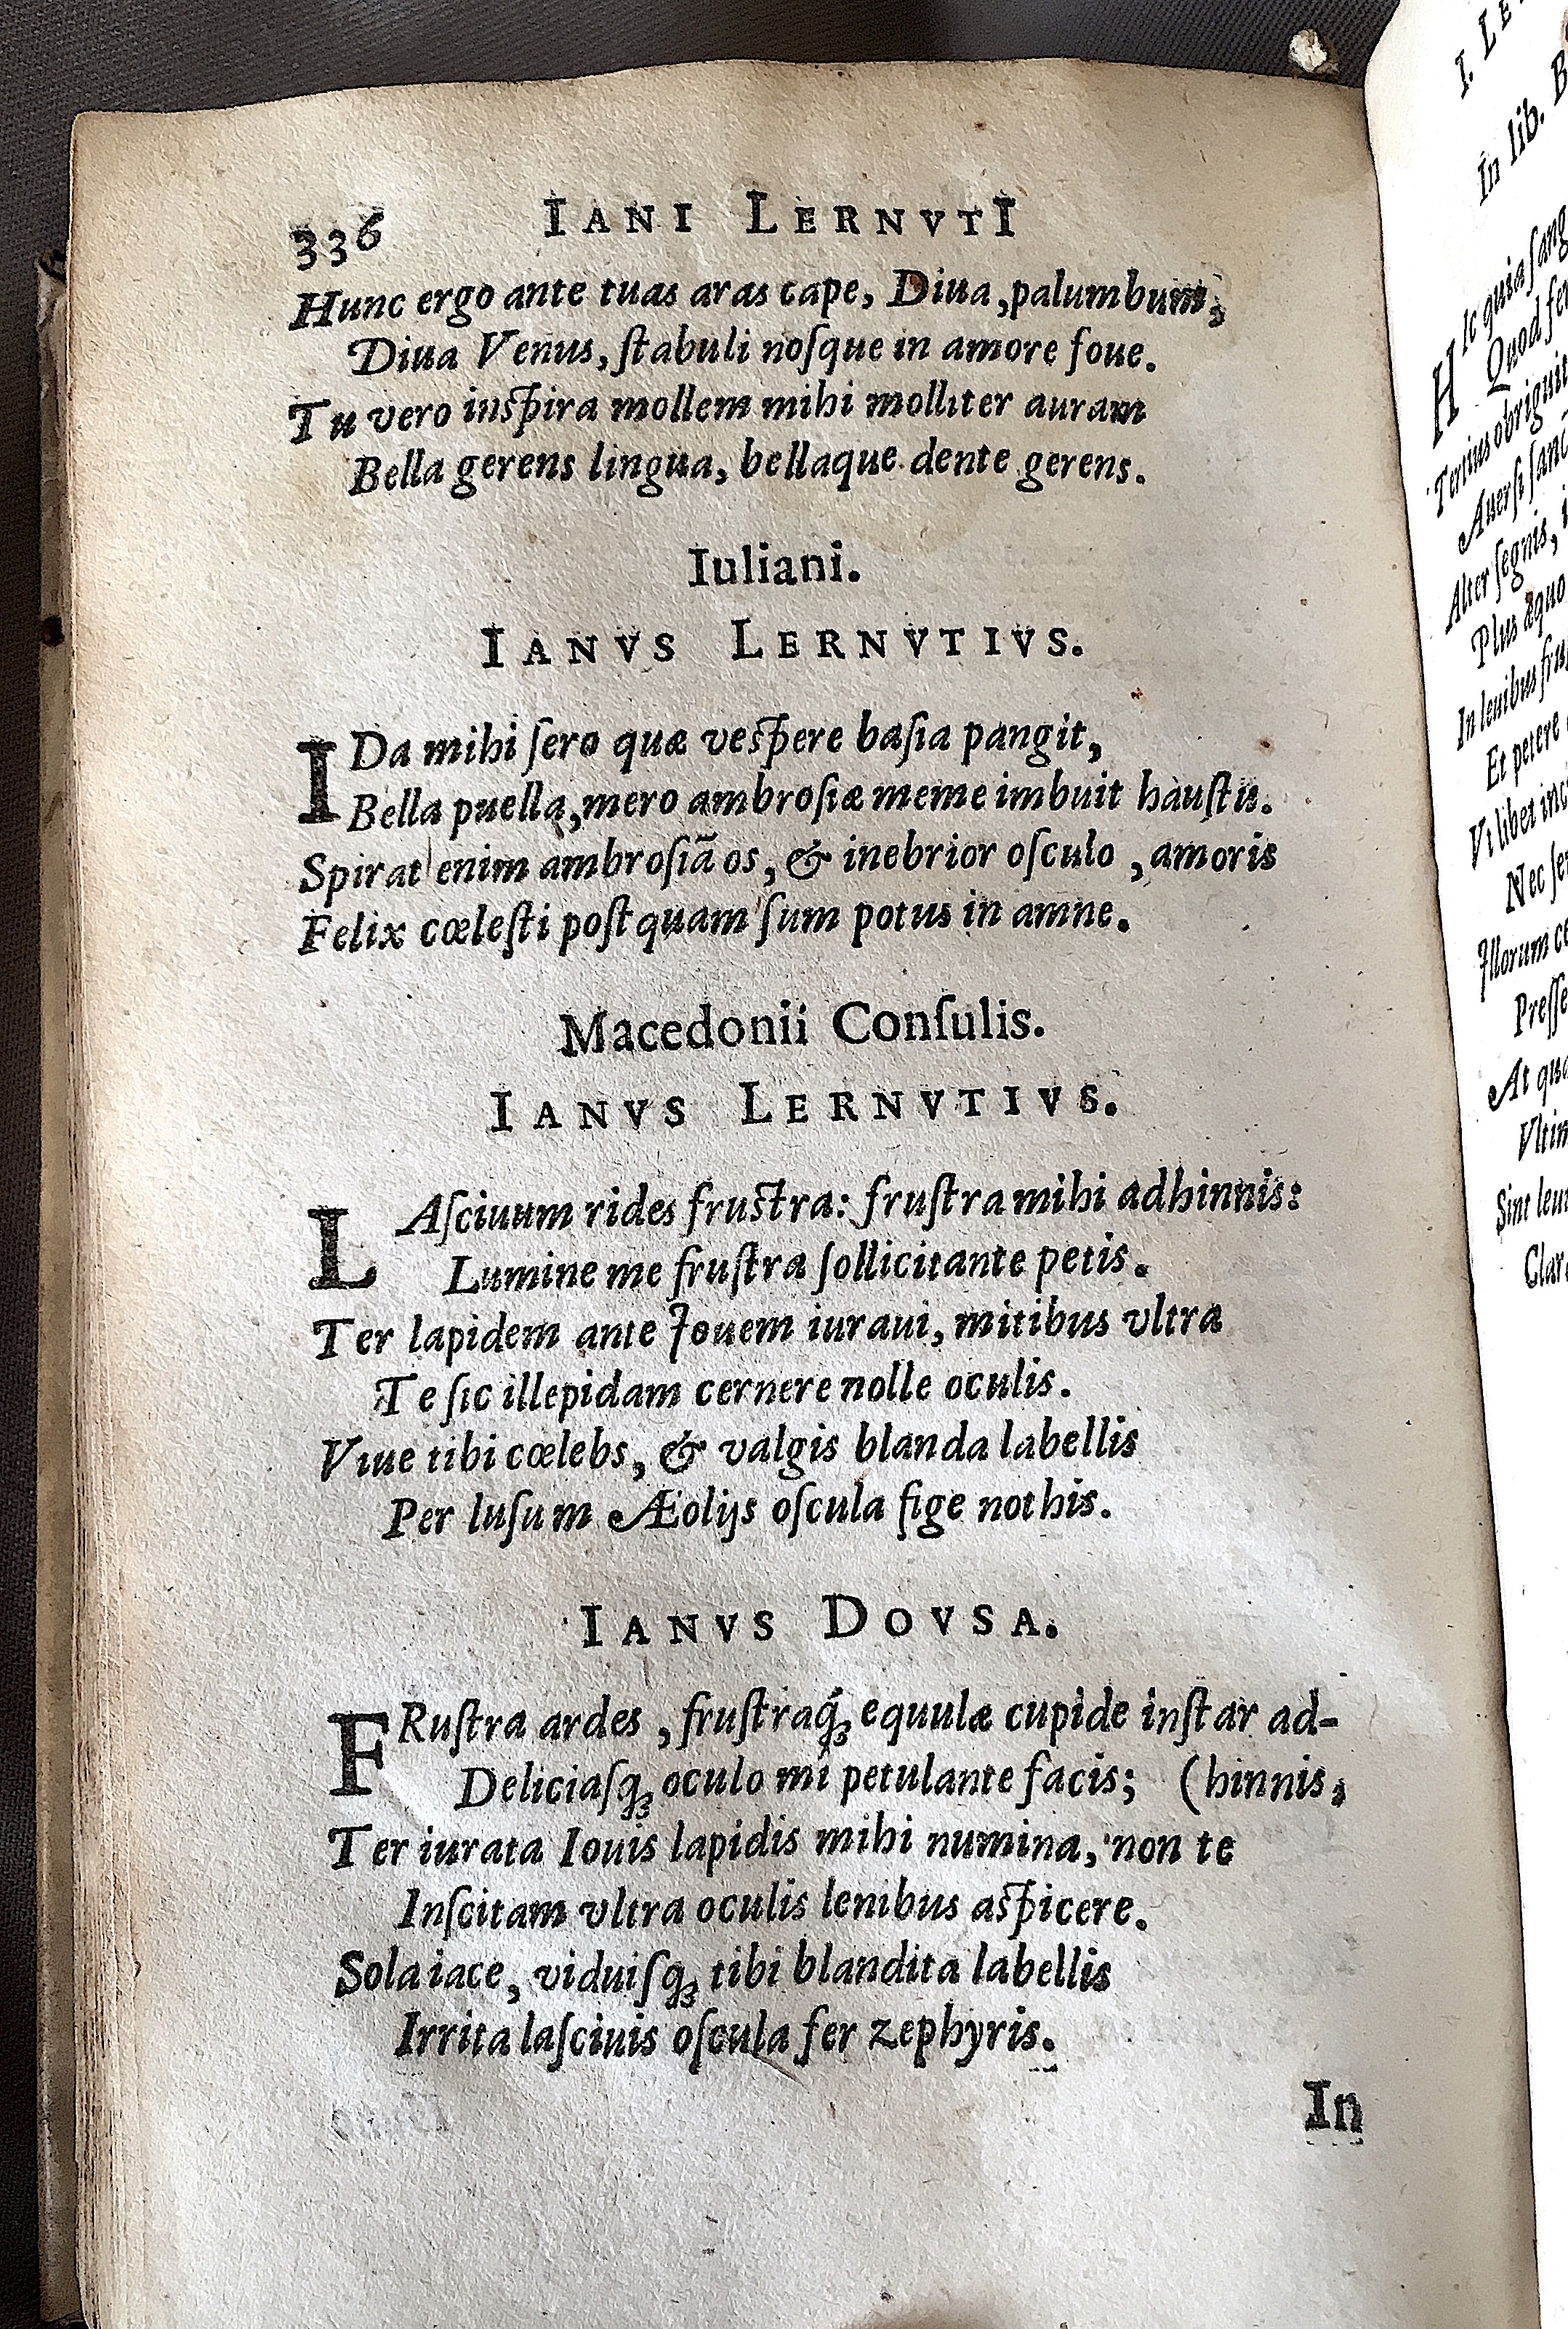 336 IANI LERNVTI
Hunc ergo ante tuas aras cape, Diua, palumbum,
Diua Venus, ſtabuli noſque in amore foue.
Tu vero inſpira mollem mihi molliter auram
Bella gerens lingua, bellaque dente gerens.
Iuliani.
IANVS LERNVTIVS.
IDa mihi ſero quæ veſpere baſia pangit,
Bella puella, mero ambroſiæ meme imbuit hauſtu.
Spirat enim ambroſiã os, & inebrior oſculo, amoris
Felix cœleſti poſtquam ſum potus in amne.
Macedonii Conſulis.
IANVS LERNVTIVS.
LAſciuum rides fruſtra: fruſtra mihi adhinnis:
Lumine me fruſtra ſollicitante petis.
Ter lapidem ante Iouem iuraui, mitibus vltra
Te ſic illepidam cernere nolle oculis.
Viue tibi cœlebs, & valgis blanda labellis
Per luſum Æolijs oſcula fige nothis.
IANVS DOVSA.
FRuſtra ardes, fruſtraq́ꝫ equulæ cupide inſtar ad-
Deliciaſqꝫ oculo mî petulante facis; (hinnis,
Ter iurata Iouis lapidis mihi numina, non te
Inſcitam vltra oculis lenibus aſpicere.
Sola iace, viduiſqꝫ tibi blandita labellis
Irrita laſciuis oſcula fer zephyris.
In
I. LE
In lib. B
HIc quia ſang
Quod
Tertius obriguit
Auerſi
Alter ſegnis,
Plus æquo
In lenibus
Et petere
Vt libet
Nec
Illorum
At
Sint